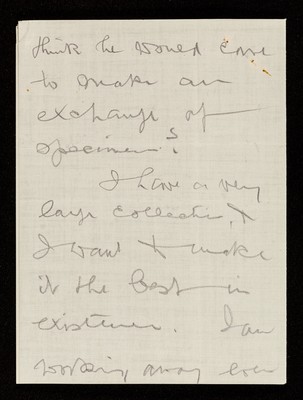 think he would care
to make an
exchange of
specimens?
I have a very
large collection, &
I want to make
it the best in
existence. I am
working away over